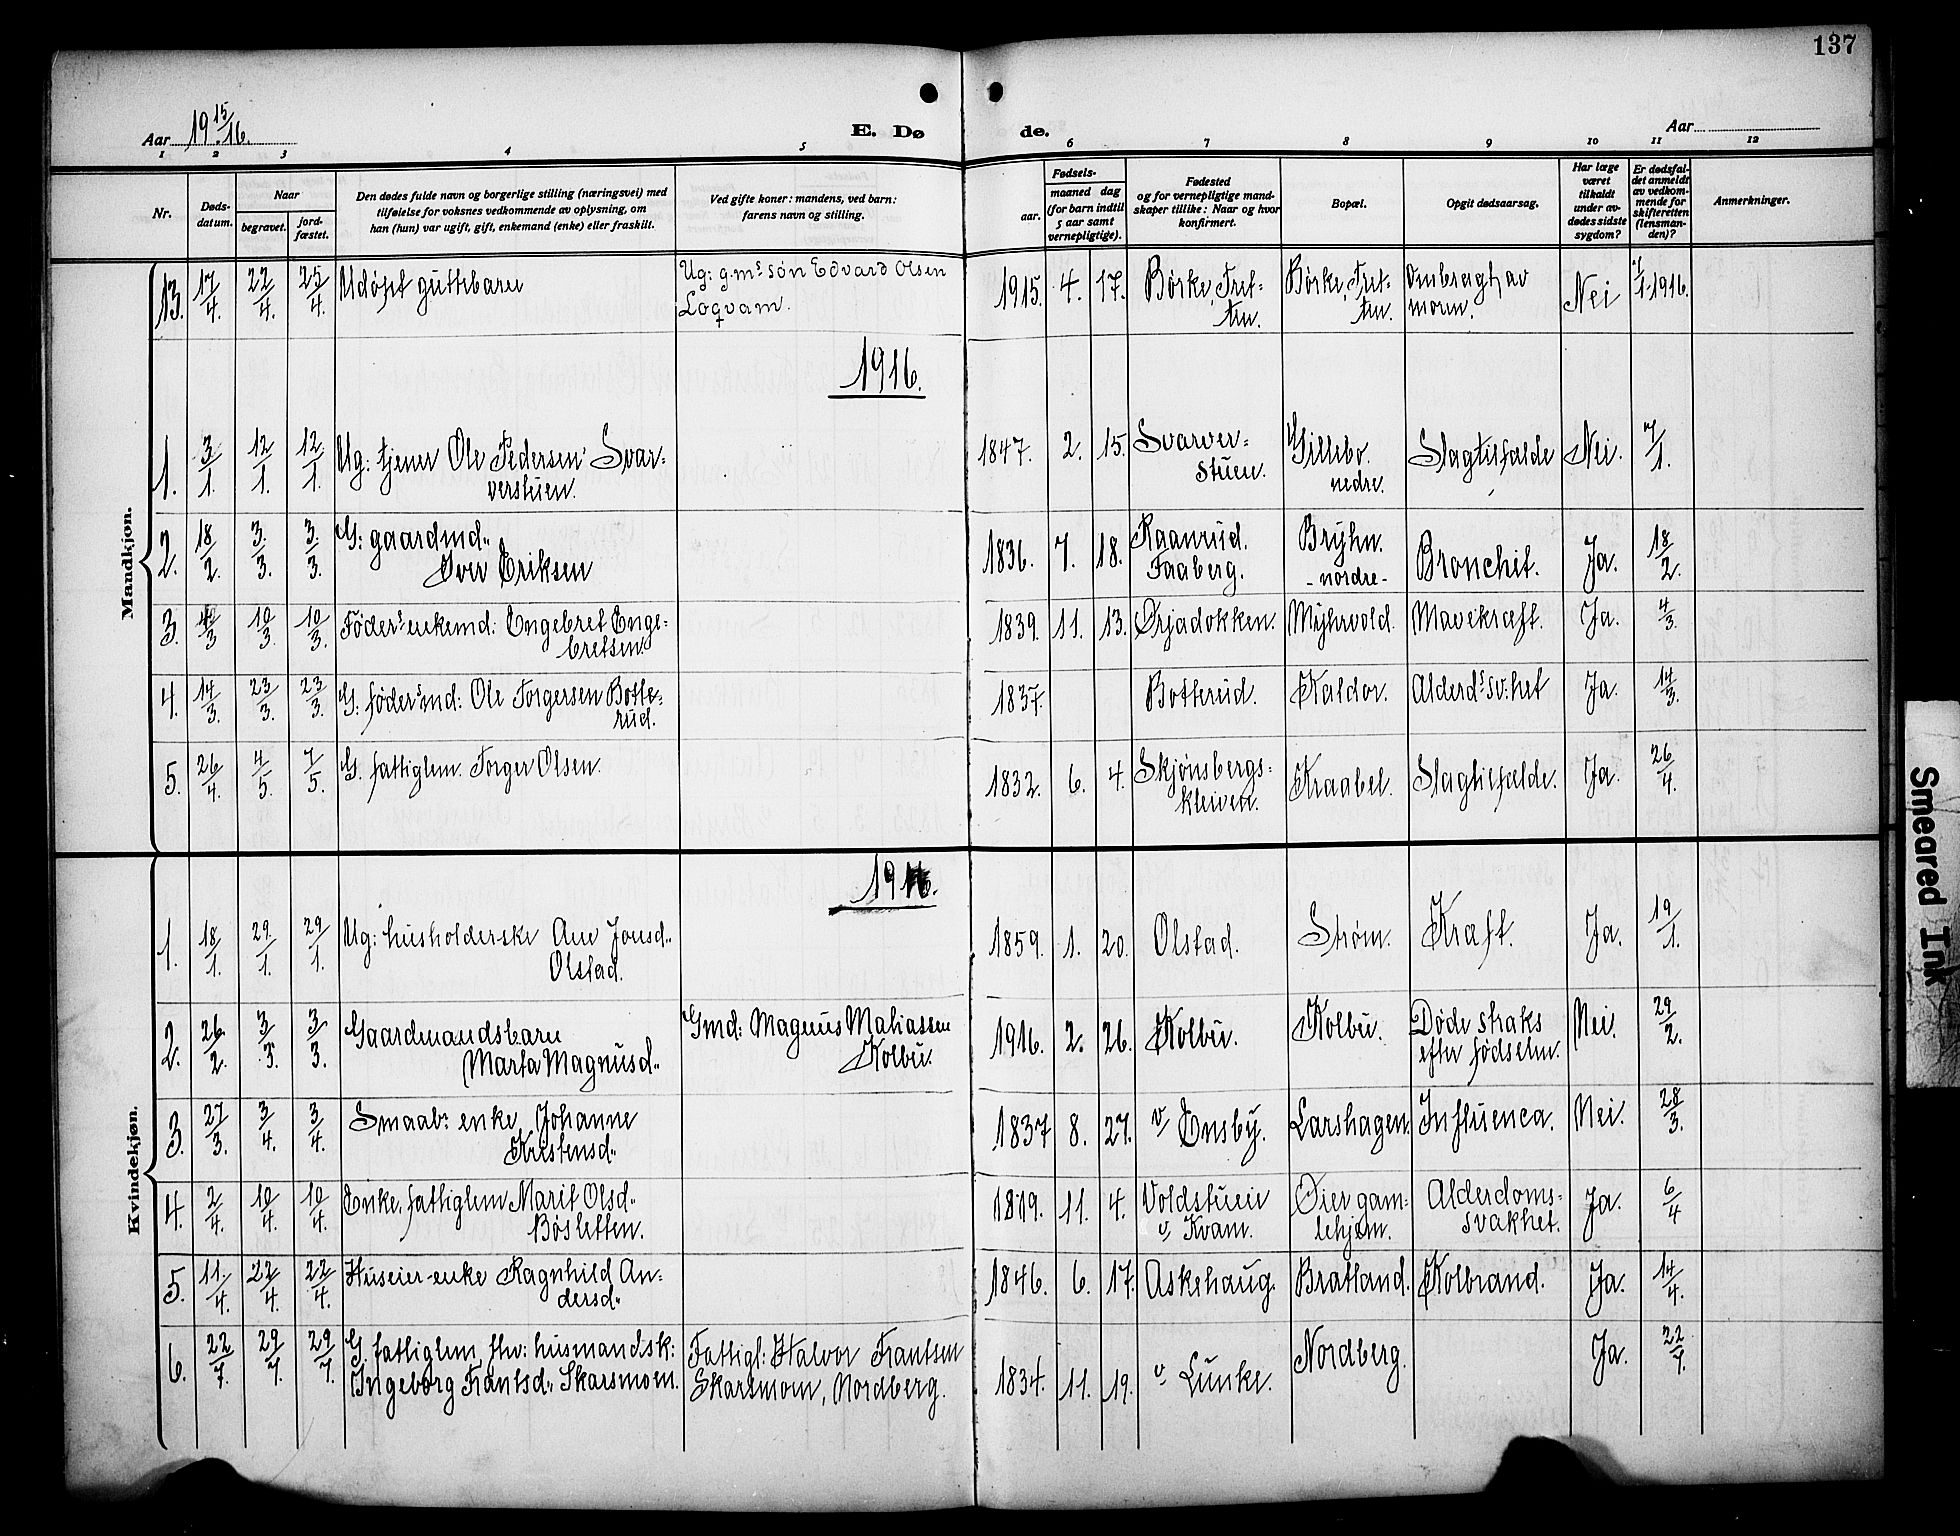 137
Aar 19 15/16.
E. Dø de.
Aar
1 2 3 4 5 6 7 8 9 10 11 12
Nr.
Døds-
datum.
Naar
begravet.
jord-
fæstet.
Den dødes fulde navn og borgerlige stilling (næringsvei) med
tilføielse for voksnes vedkommende av oplysning, om
han (hun) var ugift, gift, enkemand (enke) eller fraskilt.
Ved gifte koner: mandens, ved barn:
farens navn og stilling.
Fødsels-
aar.
maaned dag
(for barn indtil
5 aar samt
vernepligtige).
Fødested
og for vernepligtige mand-
skaper tillike: Naar og hvor
konfirmert.
Bopæl.
Opgit dødsaarsag.
Har læge
været
tilkaldt
under av-
dødes sidste
sygdom?
Er dødsfal-
det anmeldt
av vedkom-
mende for
skifteretten
(lensman-
den)?
Anmerkninger.
Mandkjøn.
13. 17/4. 22/4. 25/4. Udöpt guttebarn Ug: g.m.s sön Edvard Olsen 1915. 4. 17. Börke, Tret- Börke, Tret- Ombragt av Nei 7/1-1916.
Loqvam. ten. ten. moren.
1916.
1. 3/1. 12/1. 12/1. Ug: tjener Ole Pedersen Svar- 1847. 2. 15. Svarver- Gillebo Slagtilfælde Nei. 7/1.
verstuen. stuen. nedre.
2. 18/2. 3/3. 3/3. G: gaardmd. 1836. 7. 18. Raanrud. Bryhn. Bronchit. Ja. 18/2.
Iver Eriksen Faaberg. -nordre-
3. 4/3 10/3. 10/3. Föder.s enkemd: Engebret Enge- 1839. 11. 13. Ørjadokken. Myhrvold. Mavekræft. Ja. 4/3.
bretsen.
4. 14/3. 23/3. 23/3. G: föder.s md: Ole Torgersen Botte- 1837. Botterud. Kaldor. Alderd.s sv:het Ja. 14/3.
rud.
5. 26/4. 4/5. 7/5. G. fattiglem. Torger Olsen. 1832. 6. 4. Skjönsbergs- Kraabel. Slagtilfælde. Ja. 26/4.
kleiven.
Kvindekjøn.
1916.
1. 18/1. 29/1. 29/1. Ug: husholderske Ane Jonsd. 1859. 1. 20. Olstad. Ström. Kræft. Ja. 19/1.
Olstad.
2. 26/2. 3/3. 3/3. Gaardmandsbarn Gmd: Magnus Maliassen 1916. 2. 26. Kolbu. Kolbu. Döde straks Nei. 29/2.
Marta Magnusd. Kolbu. efter födselen.
3. 27/3. 3/4. 3/4. Smaab: enke Johanne 1837 8. 27. v/ Ensby. Larshagen. Influenca. Nei. 28/3.
Kristensd.
4. 2/4. 10/4. 10/4. Enke, fattiglem Marit Olsd. 1819. 11. 4. Voldstuen Øier gam- Alderdoms- Ja. 6/4
Bösletten. v. Kvam. lehjem. svakhet.
5. 11/4. 22/4. 22/4. Huseier-enke Ragnhild An- 1846. 6. 17. Askehaug. Bratland. Kolbrand. Ja. 14/4.
dersd.
6. 22/7. 29/7. 29/7. G. fattiglem fhv: husmandsk: Fattigl: Halvor Frantsen 1834. 11. 19. v. Lunke. Nordberg. Ja. 22/7.
Ingeborg Frantsd. Skarsmoen. Skarsmoen, Nordberg.
Smeared Ink